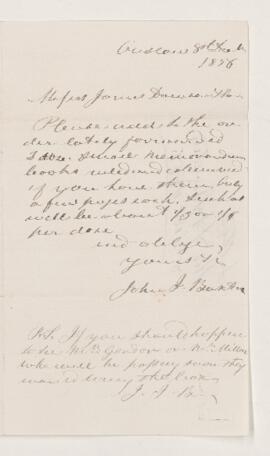 Onslow 8th Dec
1876
Messrs James Dawson &
Please add to the or
der lately forwarded
2 doz. small memorandum
books ruled
if you have them, only
a few pages each. Such as
will be about 1/3 or 1/6
per doz
and oblige,
Yours
John J. Baxter
P.S. If you should happen
to see Mr Gordon or Mr Miller
who will be passing soon they
would bring the box
J. J. B.